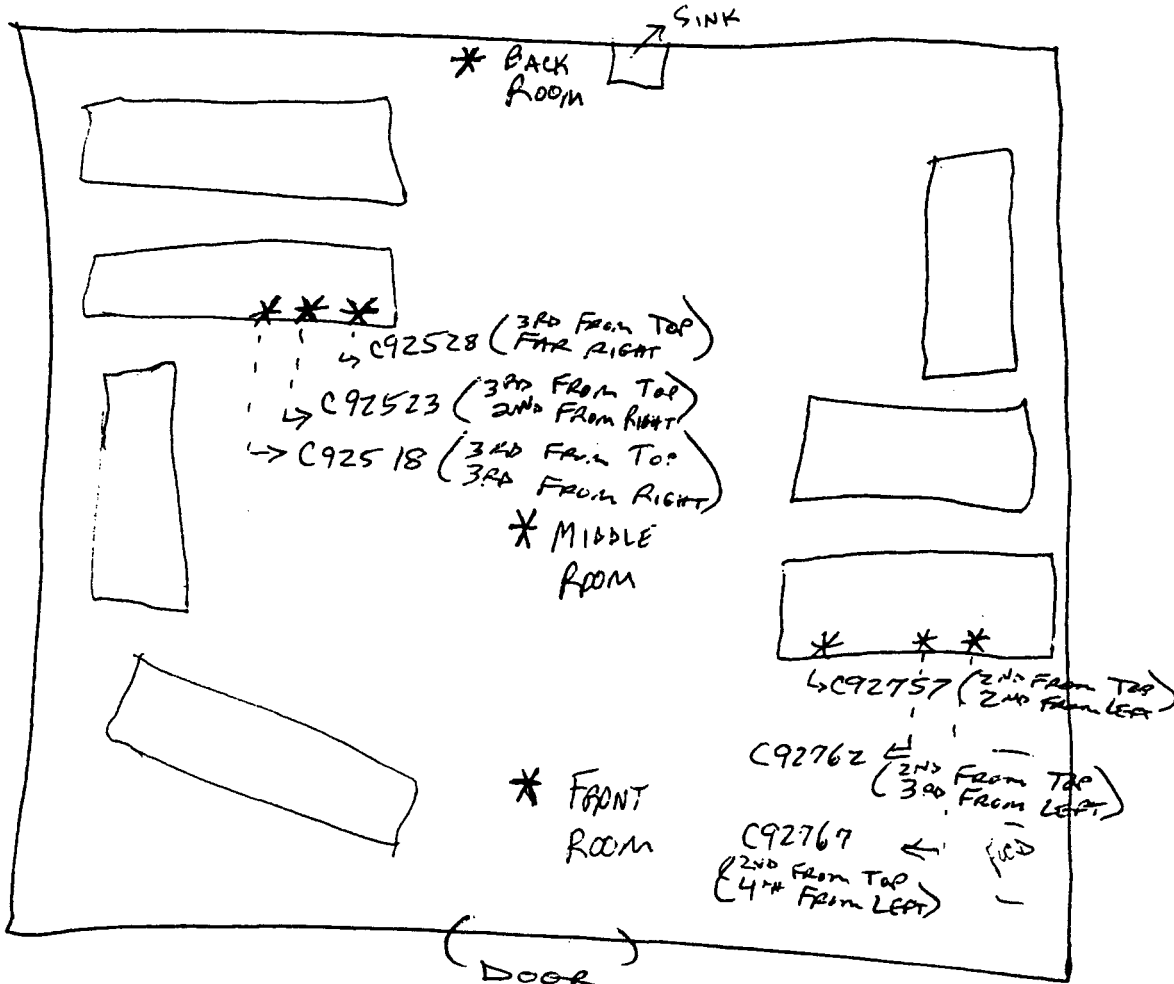 SINK
* BACK
ROOM
C92528 (3RD FROM TOP
FAR RIGHT)
C92523 (3RD FROM TOP
2ND FROM RIGHT)
C92518 (3RD FROM TOP
3RD FROM RIGHT)
* MIDDLE
ROOM
C92757 (2ND FROM TOP
2ND FROM LEFT)
C92762
(2ND FROM TOP
3RD FROM LEFT)
* FRONT
ROOM
C92767
(2ND FROM TOP
4TH FROM LEFT)
(DOOR)